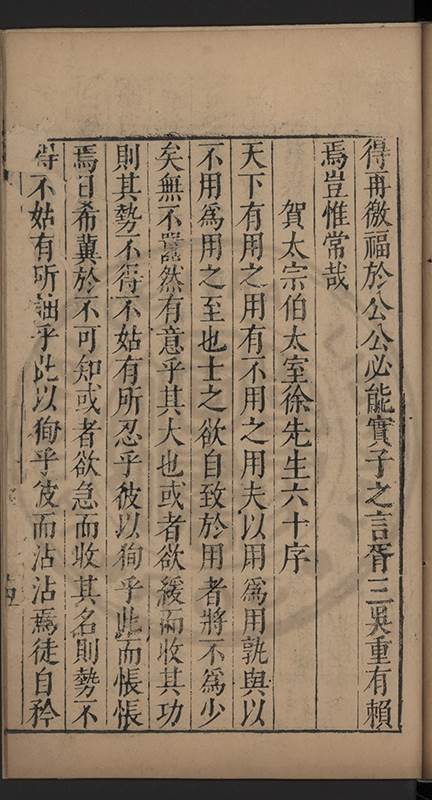 得再徼福於公公必能實子之言胥三吳重有賴
焉豈惟常哉
賀太宗伯太室徐先生六十序
天下有用之用有不用之用夫以用為用孰與以
不用為用之至也士之欲自致於用者將不為少
矣無不囂然有意乎其大也或者欲緩而收其功
則其勢不得不姑有所忍乎彼以狥乎此而悵悵
焉日希冀於不可知或者欲急而收其名則勢不
得不姑有所詘乎此以狥乎彼而沾沾焉徒自矜